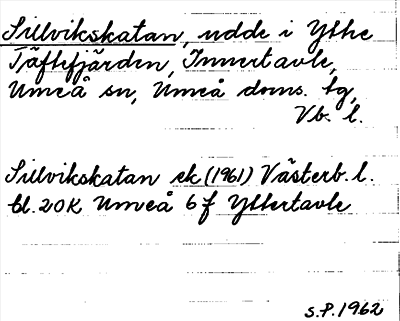 Sillvikskatan, udde i Yttre
Täftefjärden, Innertavle,
Umeå sn, Umeå doms. tg,
Vb. l.
Sillvikskatan ek (1961) Västerb. l.
bl. 20K Umeå 6f Yttertavle
S.P. 1962